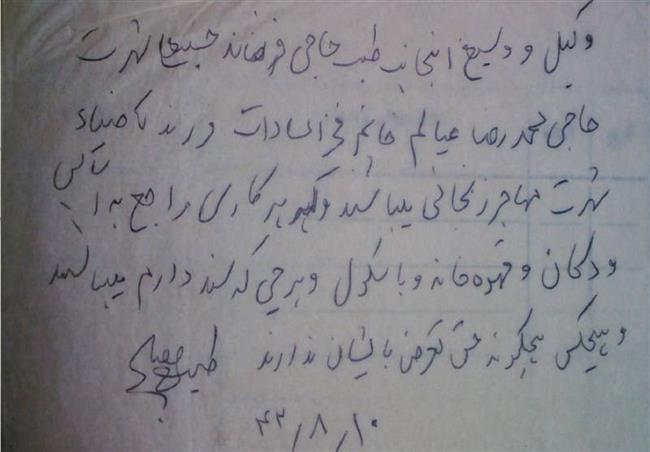 وکیل و وصی اینجانب طیب حاجی فرزند حسینعلی شهرت
حاجی محمد رضا عیالم خانم فخرالسادات فرزند آقا ضیاء
شهرت مهاجر زنجانی میباشند و هر کاری راجع به اثاث
و دکان و قهوه خانه و باسکول و هر چی که سند دارم میباشند
و هیچکس هیچگونه حق تعرض بایشان ندارند طیب
۴۲٫۸٫۱۰